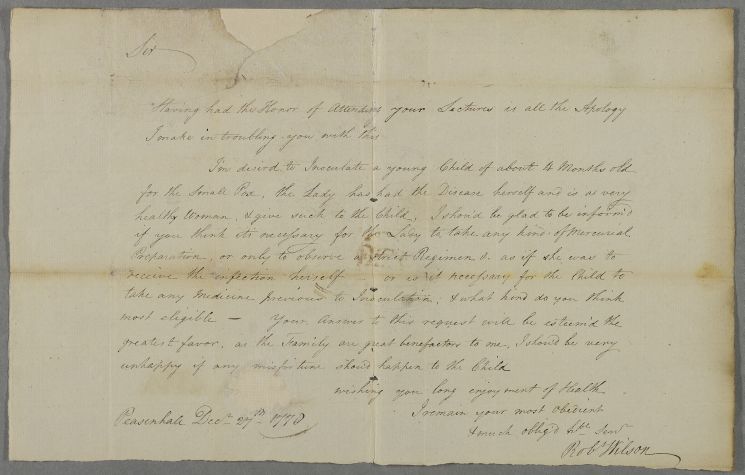 Sir
Having had the Honor of Attending your Lectures is all the Apology
I make in troubling you with this
I'm desir'd to Inoculate a young Child of about 4 Months old
for the Small Pox, the Lady has had the Disease herself and is a very
healthy Woman, & give suck to the Child, I should be glad to be inform'd
if you think its necessary for the Lady to take any kind of Mercurial
Preparation, or only to observe a strict Regimen &c as if she was to
receive the infection herself or is it necessary for the Child to
take any Medicine previous to Inoculation; & what kind do you think
most eligible — Your Answer to this request will be esteem'd the
greatest favor, as the Family are great benefactors to me, I should be very
unhappy if any misfortune should happen to the Child
wishing you long enjoyment of Health
I remain your most Obedient
& much oblig'd Hble Servt
Robt Wilson
Peasenhall Decr 27th